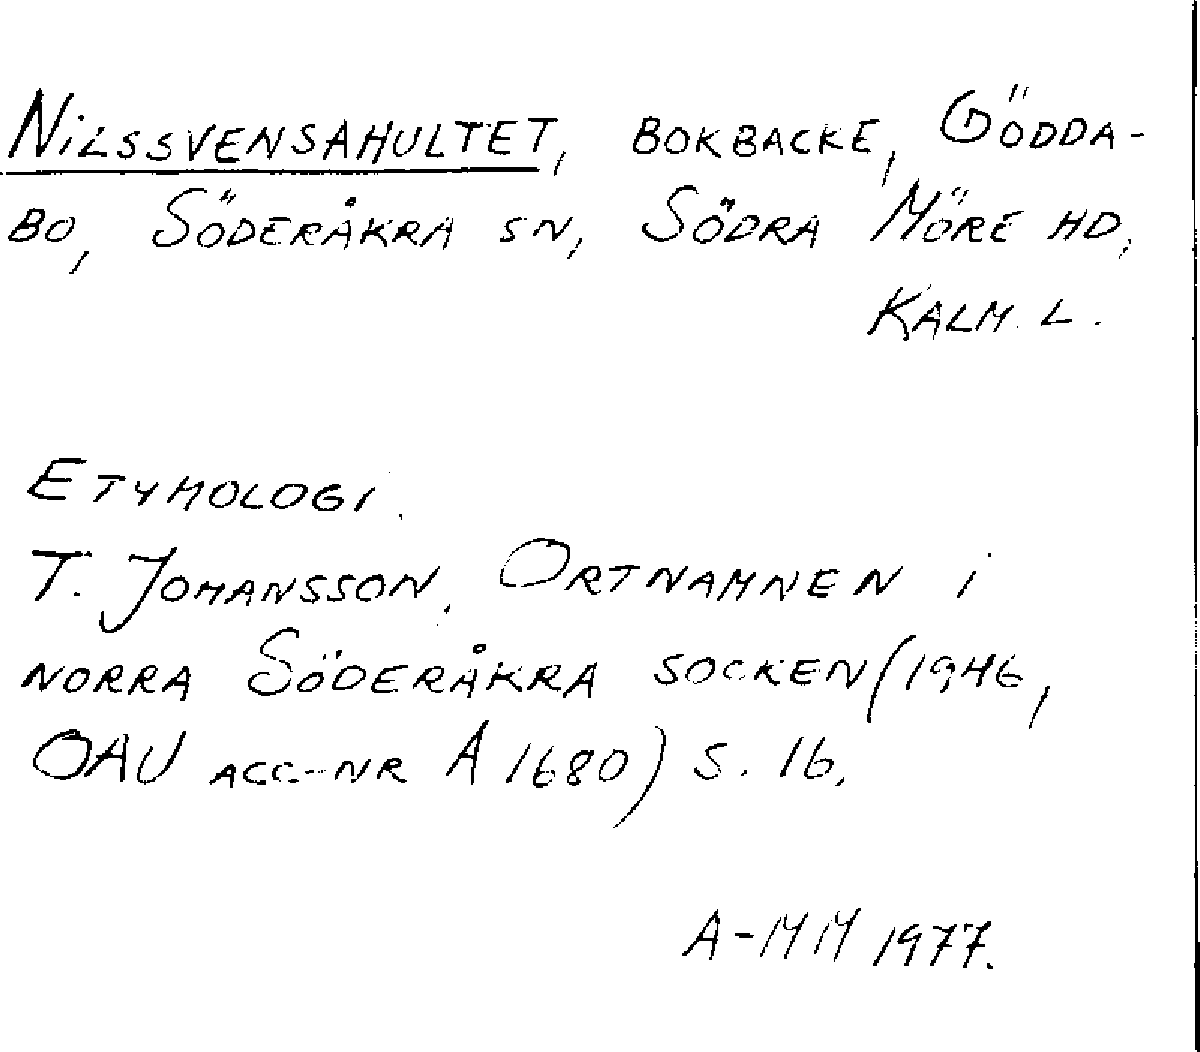 NILSSVENSAHULTET, BOKBACKE, GÖDDA-
BO, SÖDERÅKRA SN, SÖDRA MÖRE HD,
KALM. L.
ETYMOLOGI.
T. JOHANSSON, ORTNAMNEN I
NORRA SÖDERÅKRA SOCKEN (1946,
OAU ACC-NR A 1680) S. 16.
A-MM 1977.